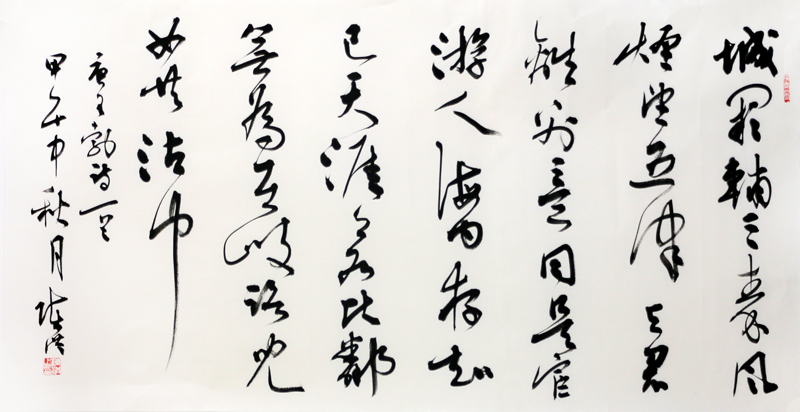 城闕輔三秦風
煙望五津與君
離別意同是宦
游人海內存知
己天涯若比鄰
無為在歧路兒
女共沾巾
唐王勃詩一首
甲午中秋月